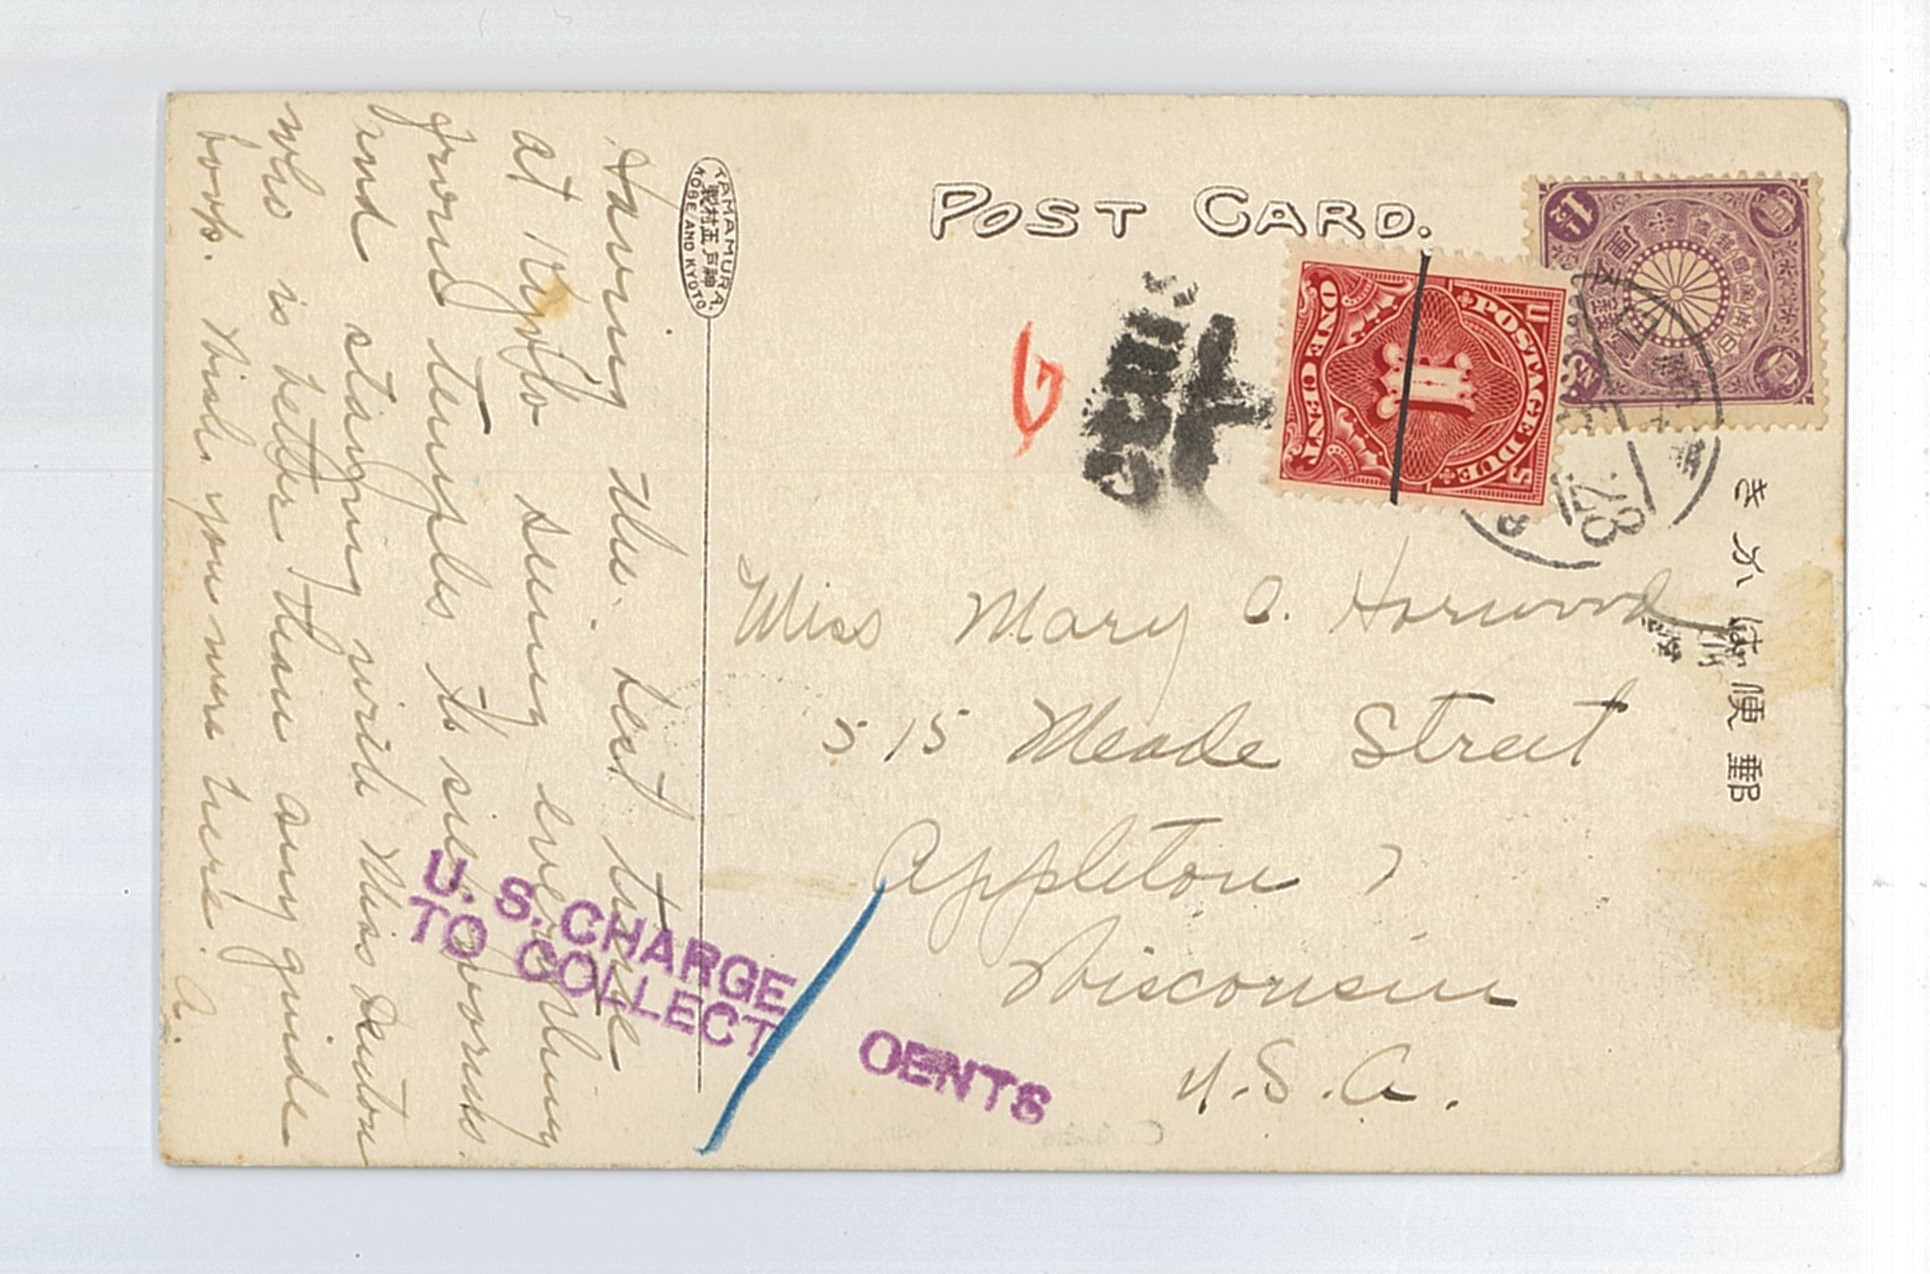 POST CARD.
TAMAMURA.
KOBE AND KYOTO.
きかは便郵
1½
U.S. POSTAGE DUE
1
ONE CENT
28
Having the best time
at Kyoto seeing everything
from temples to silk works.
And staying with Miss Denton
who is better than any guide
book. Wish you were here. A.
Miss Mary C. Horwood
515 Meade Street
Appleton,
Wisconsin
U.S.A.
U.S. CHARGE
TO COLLECT
CENTS